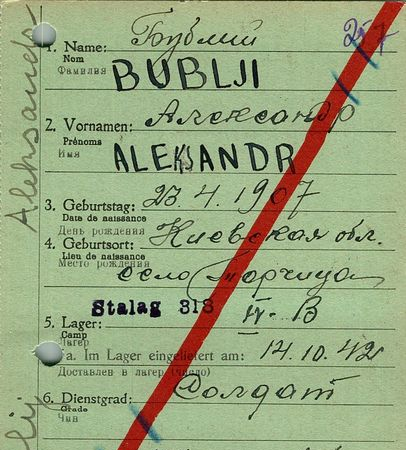 257
1. Name: Бублий
Nom
Фамилия
BUBLJI
2. Vornamen: Александр
Prénoms
Имя
ALEKSANDR
3. Geburtstag: 23.4.1907
Date de naissance
День рождения
4. Geburtsort: Киевская обл.
Lieu de naissance
Место рождения
село Торчица
Stalag 318
5. Lager: IV-B
Camp
Лагер
a. Im Lager eingeliefert am: 14.10.42
Доставлен в лагер (число)
6. Dienstgrad: Солдат
Grade
Чин
Aleksand